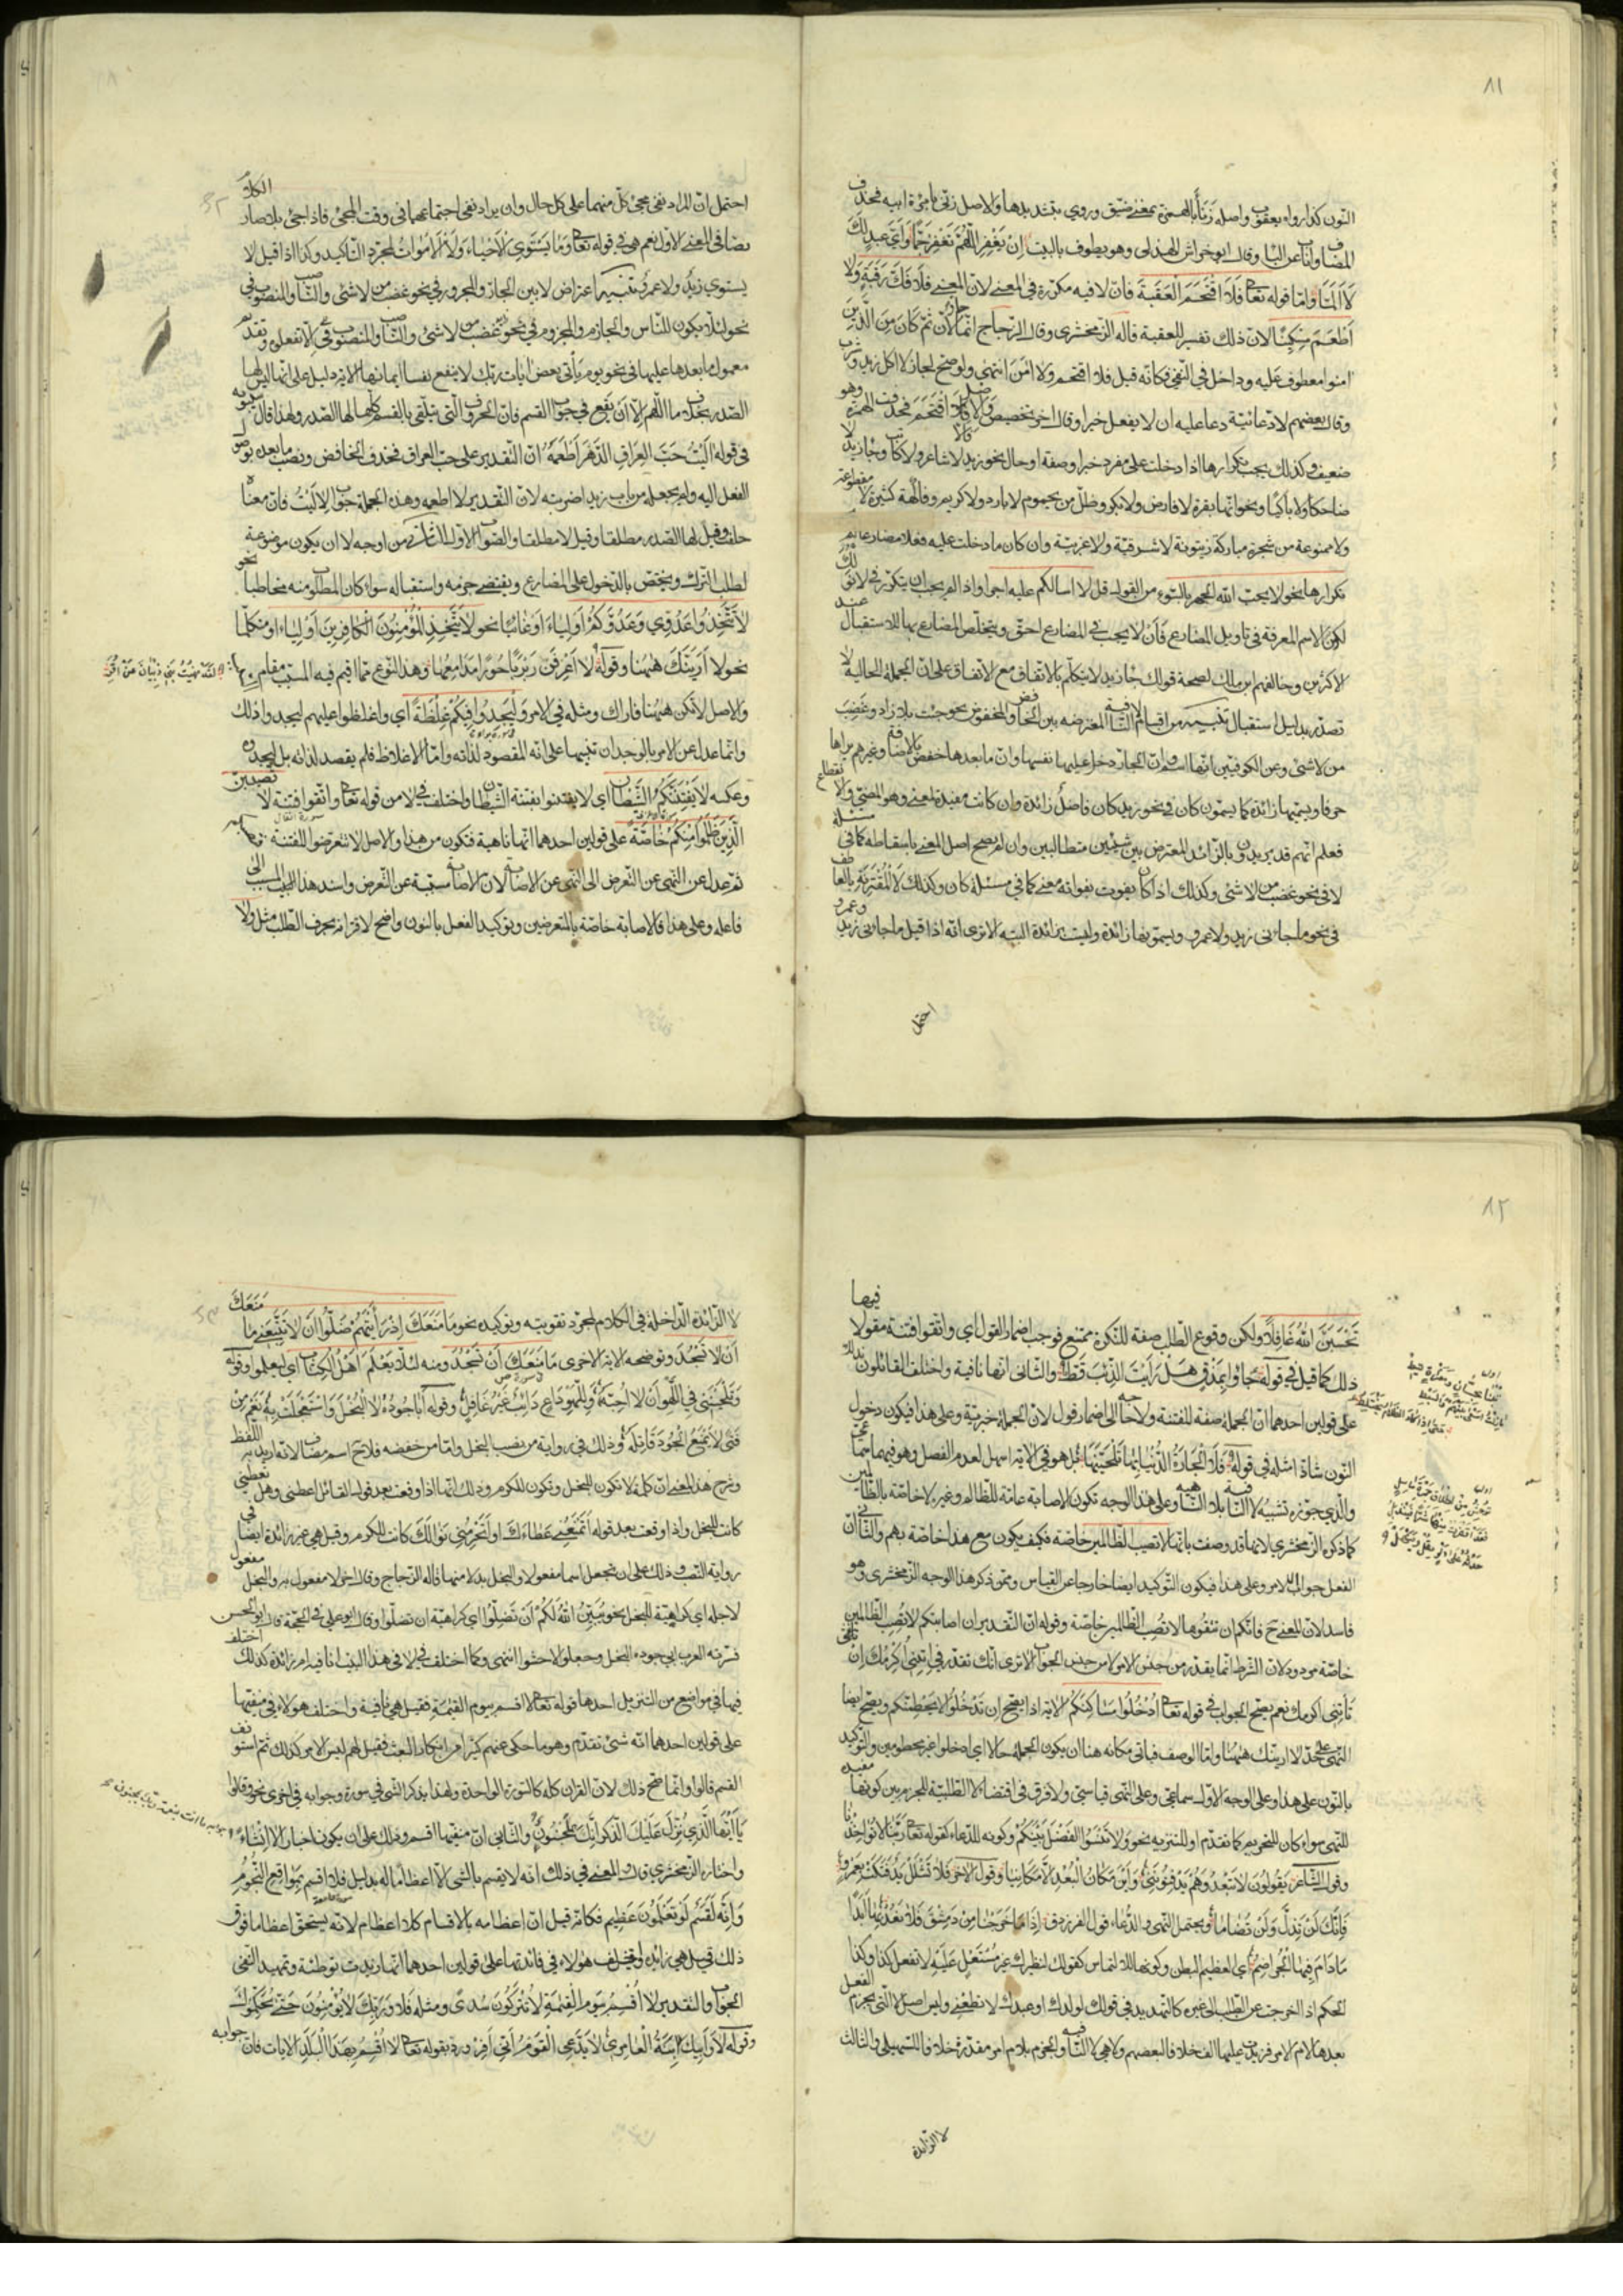 ٨١
النون كذا رواه يعقوب واصله زنأ بالهمزة بمعنى ضيق وروي بتشديدها والاصل زنى بامرأة ابيه فحذف
المضاف واناب عن الباء وقال ابو خراش الهذلي وهو يطوف بالبيت اِنْ تَغْفِرِ اللّٰهُمَّ تَغْفِرْ جَمًّا وَاَيُّ عَبْدٍ لَكَ
لَا اَلَمَّا واما قوله تعالى فَلَا اقْتَحَمَ الْعَقَبَةَ فان لا فيه مكررة في المعنى لان المعنى فلا فَكَّ رَقَبَةٍ وَلَا
اَطْعَمَ مِسْكِينًا لان ذلك تفسير للعقبة قاله الزمخشري وقال الزجاج انما جاز لان ثم كَانَ مِنَ الَّذِينَ
امنوا معطوف عليه وداخل في النفي فكانه قيل فلا اقتحم ولا امن انتهى ولو صح لجاز لا اكل زيد وشرب
وقال بعضهم لا دعائية دعا عليه ان لا يفعل خيرا وقال اخر تخصيص والاصل فالا اقتحم فحذفت الهمزة وهو
ضعيف وكذلك يجب تكرارها اذا دخلت على مفرد خبر او صفة او حال نحو زيد لا شاعر ولا كاتب وجاء زيد لا
ضاحكا ولا باكيا ونحو انها بقرة لا فارض ولا بكر وظل من يحموم لا بارد ولا كريم وفاكهة كثيرة لا مقطوعة
ولا ممنوعة من شجرة مباركة زيتونة لا شرقية ولا غربية وان كان ما دخلت عليه فعلا مضارعا لم يجب
تكرارها نحو لا يحب الله الجهر بالسوء من القول قل لا اسالكم عليه اجرا واذا لم يجب ان تكرر في لا نولك
لكون الاسم المعرفة في تاويل المضارع فان لا يجب في المضارع احق ويتخلص المضارع بها للاستقبال عند
الاكثرين وخالفهم ابن مالك لصحة قولك جاء زيد لا يتكلم بالاتفاق مع الاتفاق على ان الجملة الحالية لا
تصدر بدليل استقبال تنبيه من اقسام لا النافية المعترضة بين الخافض والمخفوض نحو جئت بلا زاد وغضبت
من لا شئ وعن الكوفيين انها اسم وان الجار دخل عليها نفسها وان ما بعدها خفض بالاضافة وغيرهم يراها
حرفا ويسميها زائدة كما يسمون كان في نحو زيد كان فاضل زائدة وان كانت مفيدة لمعنى وهو المضي والانقطاع
فعلم انهم قد يريدون بالزائد المعترض بين شيئين متطالبين وان لم يصح اصل المعنى باسقاطه كما في مسئلة
لا في نحو غضبت من لا شئ وكذلك اذا كان يفوت بفواته معنى كما في مسئلة كان وكذلك لا المقترنة بالعاطف
في نحو ما جاءني زيد ولا عمرو ويسمونها زائدة وليست بزائدة البتة الا ترى انه اذا قيل ما جاءني زيد وعمرو
احتمل
احتمل ان المراد نفي مجئ كل منهما على كل حال وان يراد نفي اجتماعهما في وقت المجئ فاذا جئ بلا صار الكلام
نصا في المعنى الاول نعم هي في قوله تعالى وَمَا يَسْتَوِي الْاَحْيَاءُ وَلَا الْاَمْوَاتُ لمجرد التاكيد وكذا اذا قيل لا
يستوي زيد ولا عمرو تنبيه اعتراض لا بين الجار والمجرور في نحو غضبت من لا شئ وبين الناصب والمنصوب في
نحو لئلا يكون للناس والجازم والمجزوم في نحو الا تفعلوه وتقدم
معمول ما بعدها عليها في نحو يوم يأتي بعض ايات ربك لا ينفع نفسا ايمانها الاية دليل على انها ليس لها
الصدر بخلاف ما اللهم الا ان يقع في جواب القسم فان الحروف التي يتلقى بها القسم كلها لها الصدر ولهذا قال سيبويه
في قوله اٰلَيْتُ حَبَّ الْعِرَاقِ الدَّهْرَ اَطْعَمُهُ ان التقدير على حب العراق فحذف الخافض ونصب ما بعده بوصول
الفعل اليه ولم يجعله من باب زيدا ضربته لان التقدير لا اطعمه وهذه الجملة جواب لاليت فان معناه
حلفت وقيل لها الصدر مطلقا وقيل لا مطلقا والصواب الاول الثالث من اوجه لا ان يكون موضوعة
لطلب الترك ويختص بالدخول على المضارع ويقتضي جزمه واستقباله سواء كان المطلوب منه مخاطبا نحو
لَا تَتَّخِذُوا عَدُوِّي وَعَدُوَّكُمْ اَوْلِيَاءَ او غائبا نحو لَا يَتَّخِذِ الْمُؤْمِنُونَ الْكَافِرِينَ اَوْلِيَاءَ او متكلما
نحو لا اَرَيَنَّكَ هٰهُنَا وقوله لا اَعْرِفَنْ رَبْرَبًا حُورًا مَدَامِعُهَا وهذا النوع مما اقيم فيه المسبب مقام السبب
لقد نهيت بني ذبيان عن اقر
والاصل لا تكن ههنا فاراك ومثله في الامر وَلْيَجِدُوا فِيكُمْ غِلْظَةً اي واغلظوا عليهم ليجدوا ذلك
وانما عدل عن الامر بالوجدان تنبيها على انه المقصود لذاته واما الاغلاظ فلم يقصد لذاته بل ليجدوه
وعكسه لَا يَفْتِنَنَّكُمُ الشَّيْطَانُ اي لا تفتتنوا بفتنة الشيطان واختلف في لا من قوله تعالى واتقوا فتنة لا تصيبن
الَّذِينَ ظَلَمُوا مِنْكُمْ خَاصَّةً على قولين احدهما انها ناهية فتكون من هذا والاصل لا تتعرضوا للفتنة فتصيبكم
ثم عدل عن النهي عن التعرض الى النهي عن الاصابة لان الاصابة مسببة عن التعرض واسند هذا المسبب الى
فاعله وعلى هذا فالاصابة خاصة بالمتعرضين وتوكيد الفعل بالنون واضح لاقترانه بحرف الطلب مثل ولا
٨٢
تَحْسَبَنَّ اللّٰهَ غَافِلًا ولكن وقوع الطلب صفة للنكرة ممتنع فوجب اضمار القول اي واتقوا فتنة مقولا فيها
ذلك كما قيل في قوله جَاؤُا بِمَذْقٍ هَلْ رَأَيْتَ الذِّئْبَ قَطْ والثاني انها نافية واختلف القائلون بذلك
على قولين احدهما ان الجملة صفة لفتنة ولا حاجة الى اضمار قول لان الجملة خبرية وعلى هذا فيكون دخول
النون شاذا مثله في قوله فَلَا الْجَارَةُ الدُّنْيَا بِهَا تَلْحَيَنَّهَا بل هو في الاية اسهل لعدم الفصل وهو فيهما سماعي
والذي جوزه تشبيه لا النافية بلا الناهية وعلى هذا الوجه تكون الاصابة عامة للظالم وغيره لا خاصة بالظالمين
كما ذكره الزمخشري لانها قد وصفت بانها لا تصيب الظالمين خاصة فكيف يكون مع هذا خاصة بهم والثاني ان
الفعل جواب الامر وعلى هذا فيكون التوكيد ايضا خارجا عن القياس وممن ذكر هذا الوجه الزمخشري وهو
فاسد لان المعنى ح فانكم ان تتقوها لا تصب الظالمين خاصة وقوله ان التقدير ان اصابتكم لا تصب الظالمين
خاصة مردود لان الشرط انما يقدر من جنس الامر لا من جنس الجواب الا ترى انك تقدر في ائتني اكرمك ان
تأتني اكرمك نعم يصح الجواب في قوله تعالى اُدْخُلُوا مَسَاكِنَكُمْ الاية اذا يصح ان تدخلوا لا يحطمنكم ويصح ايضا
النهي على حد لا ارينك ههنا واما الوصف فياتي مكانه هنا ان يكون الجملة حالا اي ادخلوا غير محطومين والتوكيد
بالنون على هذا وعلى الوجه الاول سماعي وعلى النهي قياسي ولا فرق في اقتضاء لا الطلبية للجزم بين كونها مفيدة
للنهي سواء كان للتحريم كما تقدم او للتنزيه نحو وَلَا تَنْسَوُا الْفَضْلَ بَيْنَكُمْ وكونه للدعاء كقوله تعالى رَبَّنَا لَا تُؤَاخِذْنَا
وقول الشاعر يَقُولُونَ لَا تَبْعُدْ وَهُمْ يَدْفِنُونَنِي وَاَيْنَ مَكَانُ الْبُعْدِ اِلَّا مَكَانِيَا وقول الاخر فَلَا تَشْلَلْ يَدٌ فَتَكَتْ بِعَمْرٍو
فَاِنَّكَ لَنْ تَذِلَّ وَلَنْ تُضَامَا ويحتمل النهي والدعاء قول الفرزدق اِذَا مَا خَرَجْنَا مِنْ دِمَشْقَ فَلَا نَعُدْ لَهَا اَبَدًا
مَا دَامَ فِيهَا الْجُرَاضِمُ اي العظيم البطن وكونها للالتماس كقولك لنظيرك غير مستعل عليه لا تفعل كذا وكذا
الحكم اذا خرجت عن الطلب الى غيره كالتهديد في قولك لولدك او عبدك لا تطعني وليس اصل لا التي يجزم الفعل
بعدها لام الامر فزيدت عليها الف خلافا لبعضهم ولا هي لا النافية والجزم بلام امر مقدرة خلافا للسهيلي والثالث
لا الزائدة
لا الزائدة الداخلة في الكلام لمجرد تقويته وتوكيده نحو مَا مَنَعَكَ اِذْ رَأَيْتَهُمْ ضَلُّوا اَنْ لَا تَتَّبِعَنِي مَا مَنَعَكَ
اَنْ لَا تَسْجُدَ وتوضحه الاية الاخرى مَا مَنَعَكَ اَنْ تَسْجُدَ ومنه لِئَلَّا يَعْلَمَ اَهْلُ الْكِتَابِ اي ليعلموا وقوله
وَتَلْحَيْنَنِي فِي اللَّهْوِ اَنْ لَا اُحِبَّهُ وَلِلَّهْوِ دَاعٍ دَائِبٌ غَيْرُ غَافِلِ وقوله اَبَا جُودُهُ لَا الْبُخْلَ وَاسْتَعْجَلَتْ بِهِ نَعَمْ مِنْ
فَتًى لَا يَمْنَعُ الْجُودَ قَاتِلَهْ وذلك في رواية من نصب البخل واما من خفضه فلا ح اسم مضاف لانه اريد به اللفظ
وشرح هذا المعنى ان كلمة لا تكون للبخل وتكون للكرم وذلك انها اذا وقعت بعد قول القائل اعطني وهل تعطيني
كانت للبخل واذا وقعت بعد قوله اتمنعني عطاءك او اتحرمني نوالك كانت للكرم وقيل هي غير زائدة ايضا في
رواية النصب وذلك على ان تجعل اسما مفعولا والبخل بدلا منها قاله الزجاج وقال اخر لا مفعول به والبخل مفعول
لاجله اي كراهية البخل نحو يُبَيِّنُ اللّٰهُ لَكُمْ اَنْ تَضِلُّوا اي كراهية ان تضلوا وقال ابو علي في الحجة قال ابو الحسن
فسرته العرب ابى جوده البخل وجعلوا لا حشوا انتهى وكما اختلف في لا في هذا البيت انافية ام زائدة كذلك اختلف
فيها في مواضع من التنزيل احدها قوله تعالى لا اقسم بيوم القيمة فقيل هي نافية واختلف هؤلاء في منفيها
على قولين احدهما انه شئ تقدم وهو ما حكي عنهم كثيرا من انكار البعث فقيل لهم ليس الامر كذلك ثم استونف
القسم قالوا وانما صح ذلك لان القران كله كالسورة الواحدة ولهذا يذكر الشئ في سورة وجوابه في اخرى نحو وقالوا
يَا اَيُّهَا الَّذِي نُزِّلَ عَلَيْهِ الذِّكْرُ اِنَّكَ لَمَجْنُونٌ والثاني ان منفيها اقسم وذلك على ان يكون اخبارا لا انشاء
ما انت بنعمة ربك بمجنون
واختاره الزمخشري قال والمعنى في ذلك انه لا يقسم بالشئ الا اعظاما له بدليل فلا اقسم بِمَوَاقِعِ النُّجُومِ
وَاِنَّهُ لَقَسَمٌ لَوْ تَعْلَمُونَ عَظِيمٌ فكانه قيل ان اعظامه بالاقسام كلا اعظام لانه يستحق اعظاما فوق
ذلك وقيل هي زائدة واختلف هؤلاء في فائدتها على قولين احدهما انها زيدت توطئة وتمهيدا لنفي
الجواب والتقدير لا اُقْسِمُ بِيَوْمِ الْقِيٰمَةِ لَا يُتْرَكُونَ سُدًى ومثله فَلَا وَرَبِّكَ لَا يُؤْمِنُونَ حَتّٰى يُحَكِّمُوكَ
وقوله لَا وَاَبِيكِ ابْنَةَ الْعَامِرِيِّ لَا يَدَّعِي الْقَوْمُ اَنِّي اَفِرْ ورد بقوله تعالى لا اُقْسِمُ بِهٰذَا الْبَلَدِ الايات فان جوابه